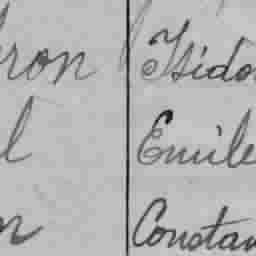 ron Isido
l Emile
n Constan